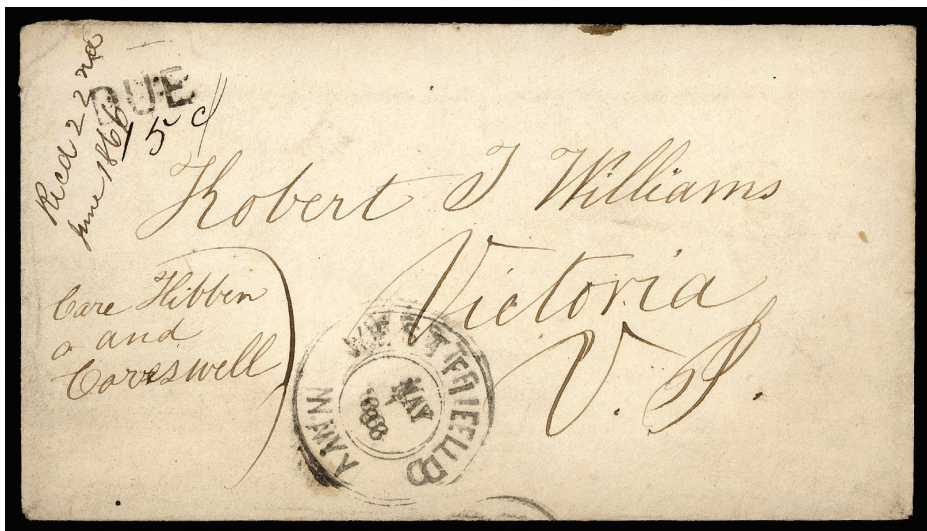 Recd 22nd
June 1866
DUE
15c
Robert T Williams
Victoria
V. I.
Care Hibben
and
Carswell
WESTFIELD
MAY